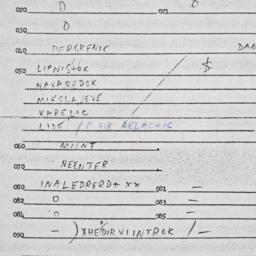 020 0 021 0
030 0
040 DEDGRENIC DAN
050 LIPNISTOK $
NAVAREDOK
MIKOLAJEVE
KARELIC
LIDE / P GIR DELACHIC
060 NOIENT
070 NEENTER
080 INALEDRERD+ XX 081 —
082 0 083 —
084 0 085 —
090 — ) XHEDIRVIINTROK / —